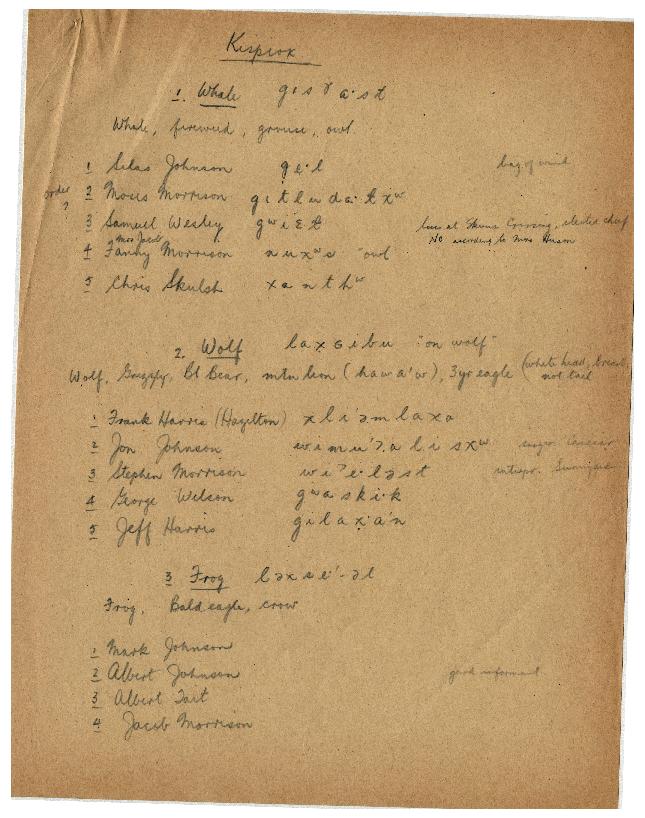 Kispiox
1. Whale gɩsɤa·st
Whale, fireweed, grouse, owl
1 Silas Johnson ge·l bag of wind
order ?
2 Moses Morrison gɩtluda·txʷ
3 Samuel Wesley gwiɛt lives at Skeena Crossing, elected chief
No according to Mrs
Mrs Jacob
4 Fanny Morrison nuxʷs "owl
5 Chris Skulsh xanthʷ
2. Wolf laxGibu "on wolf"
Wolf, Grizzly, Bl Bear, mtn lion (hawa'w), 3yr eagle (white head, breast, not tail
1 Frank Harris (Hazelton) xli'əmlaxa
2 Jon Johnson wimu'ʔalisxʷ
3 Stephen Morrison wiˀe·ləst
4 George Wilson gʷaski·k
5 Jeff Harris gilaxa'n
3 Frog ləxse'·əl
Frog, Bald eagle, crow
1 Mark Johnson
2 Albert Johnson good informant
3 Albert Tait
4 Jacob Morrison